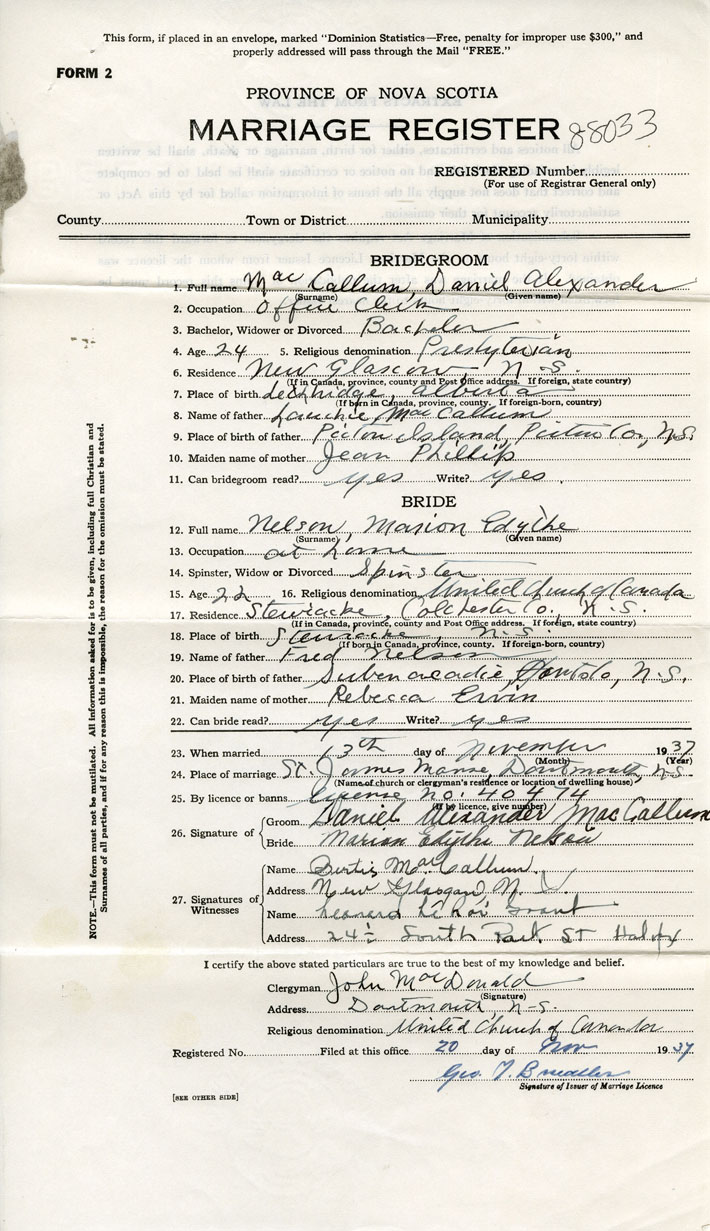 This form, if placed in an envelope, marked "Dominion Statistics—Free, penalty for improper use $300," and
properly addressed will pass through the Mail "FREE."
FORM 2
PROVINCE OF NOVA SCOTIA
MARRIAGE REGISTER 88033
REGISTERED Number
(For use of Registrar General only)
County Town or District Municipality
BRIDEGROOM
1. Full name MacCallum, Daniel Alexander
(Surname) (Given name)
2. Occupation Office Clerk
3. Bachelor, Widower or Divorced Bachelor
4. Age 24 5. Religious denomination Presbyterian
6. Residence New Glasgow, N-S.
(If in Canada, province, county and Post Office address. If foreign, state country)
7. Place of birth Lethbridge, Alberta
(If born in Canada, province, county. If foreign-born, country)
8. Name of father Lauchie MacCallum
9. Place of birth of father Pictou Island, Pictou Co., N.S.
10. Maiden name of mother Jean Phillips
11. Can bridegroom read? yes Write? yes.
BRIDE
12. Full name Nelson, Marion Edythe
(Surname) (Given name)
13. Occupation at home
14. Spinster, Widow or Divorced Spinster
15. Age 22 16. Religious denomination United Church of Canada
17. Residence Stewiacke, Colchester Co., N.S.
(If in Canada, province, county and Post Office address. If foreign, state country)
18. Place of birth Stewiacke, N.S.
(If born in Canada, province, county. If foreign-born, country)
19. Name of father Fred Nelson
20. Place of birth of father Shubenacadie, N.S.
21. Maiden name of mother Rebecca Ervin
22. Can bride read? yes Write? yes
23. When married 13th day of November 1937
(Month) (Year)
24. Place of marriage St. James Manse, Dartmouth, N.S.
(Name of church or clergyman's residence or location of dwelling house)
25. By licence or banns license no: 40474
(If by licence, give number)
26. Signature of
Groom Daniel Alexander MacCallum
Bride Marion Edythe Nelson
27. Signatures of Witnesses
Name MacCallum
Address New Glasgow N.S.
Name Leonard LeRoi Grant
Address South Park St Halifax
I certify the above stated particulars are true to the best of my knowledge and belief.
Clergyman John MacDonald
(Signature)
Address Dartmouth, N-S.
Religious denomination United Church of Canada
Registered No. Filed at this office 20 day of Nov 1937
Geo.
Signature of Issuer of Marriage Licence
[SEE OTHER SIDE]
NOTE.—This form must not be mutilated. All information asked for is to be given, including full Christian and
Surnames of all parties, and if for any reason this is impossible, the reason for the omission must be stated.